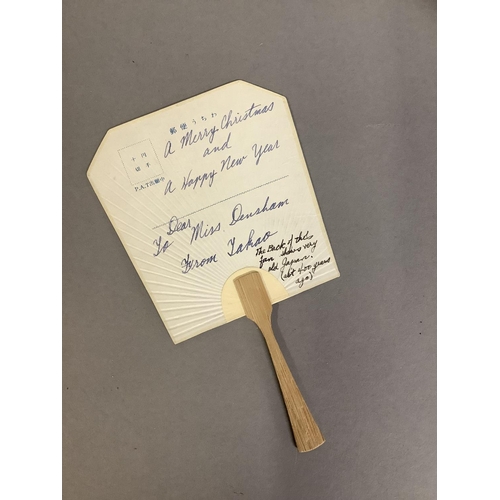 郵便うちわ
十円
切手
P.A.T出願中
A Merry Christmas
and
A Happy New Year
Dear
To Miss Densham
From Takao
The Back of this
fan shows very
old Japan.
(abt 400 years
ago)